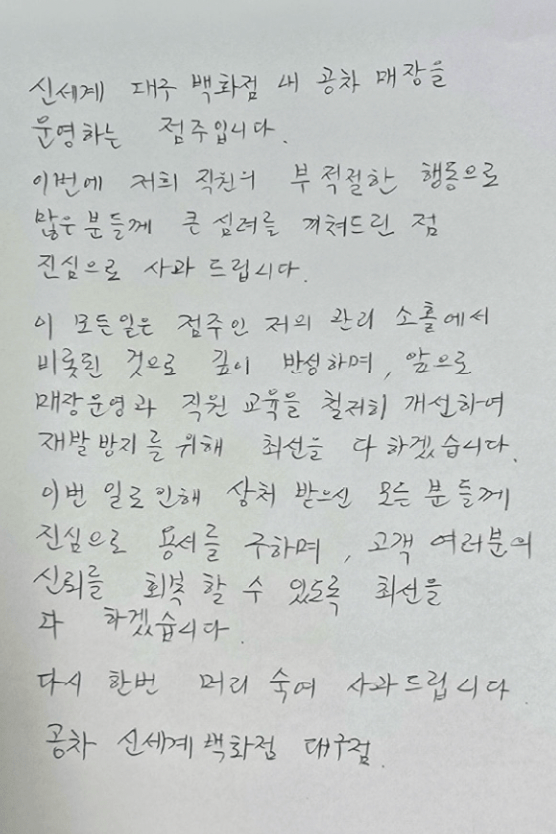 신세계 대구 백화점 내 공차 매장을
운영하는 점주입니다.
이번에 저희 직원의 부적절한 행동으로
많은분들께 큰 심려를 끼쳐드린 점
진심으로 사과 드립니다.
이 모든일은 점주인 저의 관리 소홀에서
비롯된 것으로 깊이 반성하며, 앞으로
매장운영과 직원 교육을 철저히 개선하여
재발 방지를 위해 최선을 다 하겠습니다.
이번 일로 인해 상처 받으신 모든 분들께
진심으로 용서를 구하며, 고객 여러분의
신뢰를 회복 할 수 있도록 최선을
다 하겠습니다.
다시 한번 머리 숙여 사과드립니다
공차 신세계백화점 대구점.